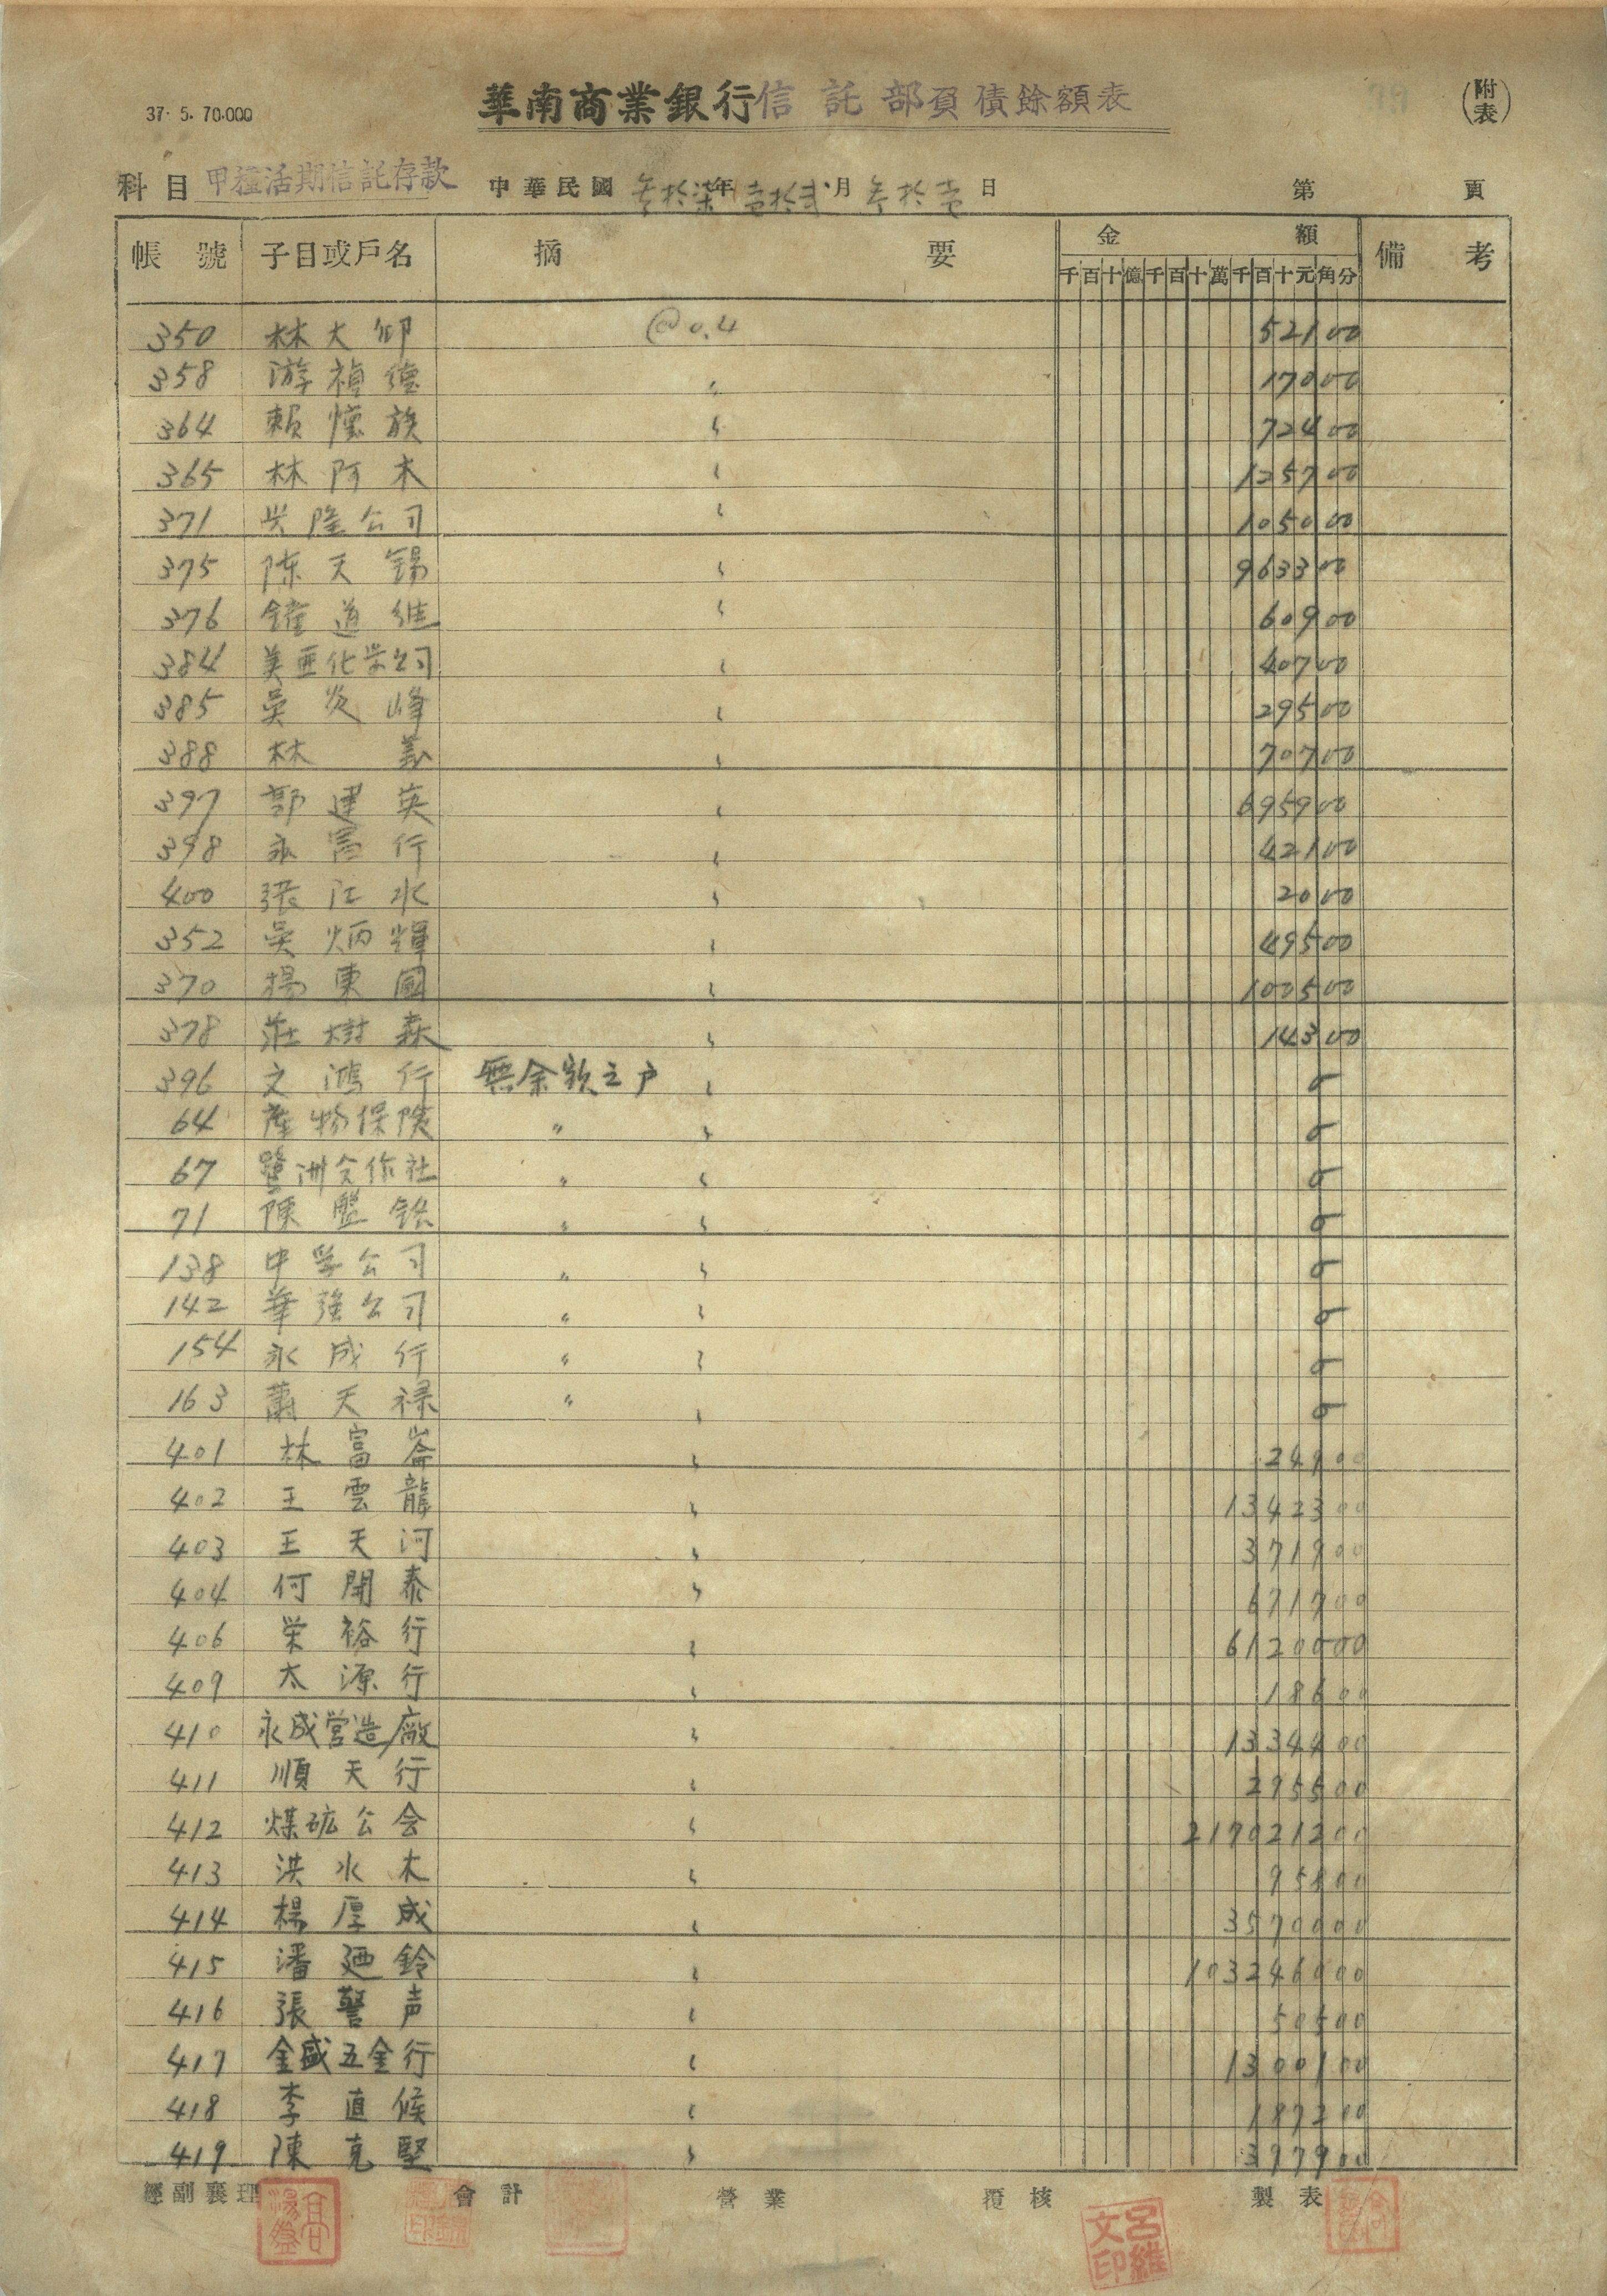 37. 5. 70.000
華南商業銀行信託部負債餘額表
(附表)
科目 甲種活期信託存款 中華民國 叁拾柒年 壹拾弍月 叁拾壹日 第 頁
帳號 子目或戶名 摘要 金額 備考
千百十億千百十萬千百十元角分
350 林大 @0.4 521 00
358 游禎德 〃 170 00
364 賴懷族 〃 724 00
365 林阿木 〃 1257 00
371 兴隆公司 〃 1050 00
375 陈天錫 〃 9633 00
376 鐘道維 〃 609 00
384 美亜化学公司 〃 407 00
385 吳炎峰 〃 295 00
388 林義 〃 707 00
397 郭建英 〃 6959 00
398 永富行 〃 421 00
400 張江水 〃 20 00
352 吳炳輝 〃 495 00
370 楊東國 〃 1005 00
378 莊樹森 〃 143 00
396 文鴻行 無余款之户 〃 0
64 產物保険 〃 〃 0
67 鷺洲合作社 〃 〃 0
71 陳盤銘 〃 〃 0
138 中孚公司 〃 〃 0
142 華強公司 〃 〃 0
154 永成行 〃 〃 0
163 蕭天禄 〃 〃 0
401 林富崙 〃 249 00
402 王雲龍 〃 13423 00
403 王天河 〃 3719 00
404 何開泰 〃 6717 00
406 栄裕行 〃 61200 00
409 太源行 〃 186 00
410 永成営造廠 〃 13344 00
411 順天行 〃 2955 00
412 煤砿公会 〃 2170212 00
413 洪水木 〃 958 00
414 楊厚成 〃 35700 00
415 潘廼鈴 〃 1032460 00
416 張警声 〃 505 00
417 金盛五金行 〃 13001 00
418 李直候 〃 1872 00
419 陳克堅 〃 3979 00
經副襄理 會計 營業 覆核 製表
呂維文印